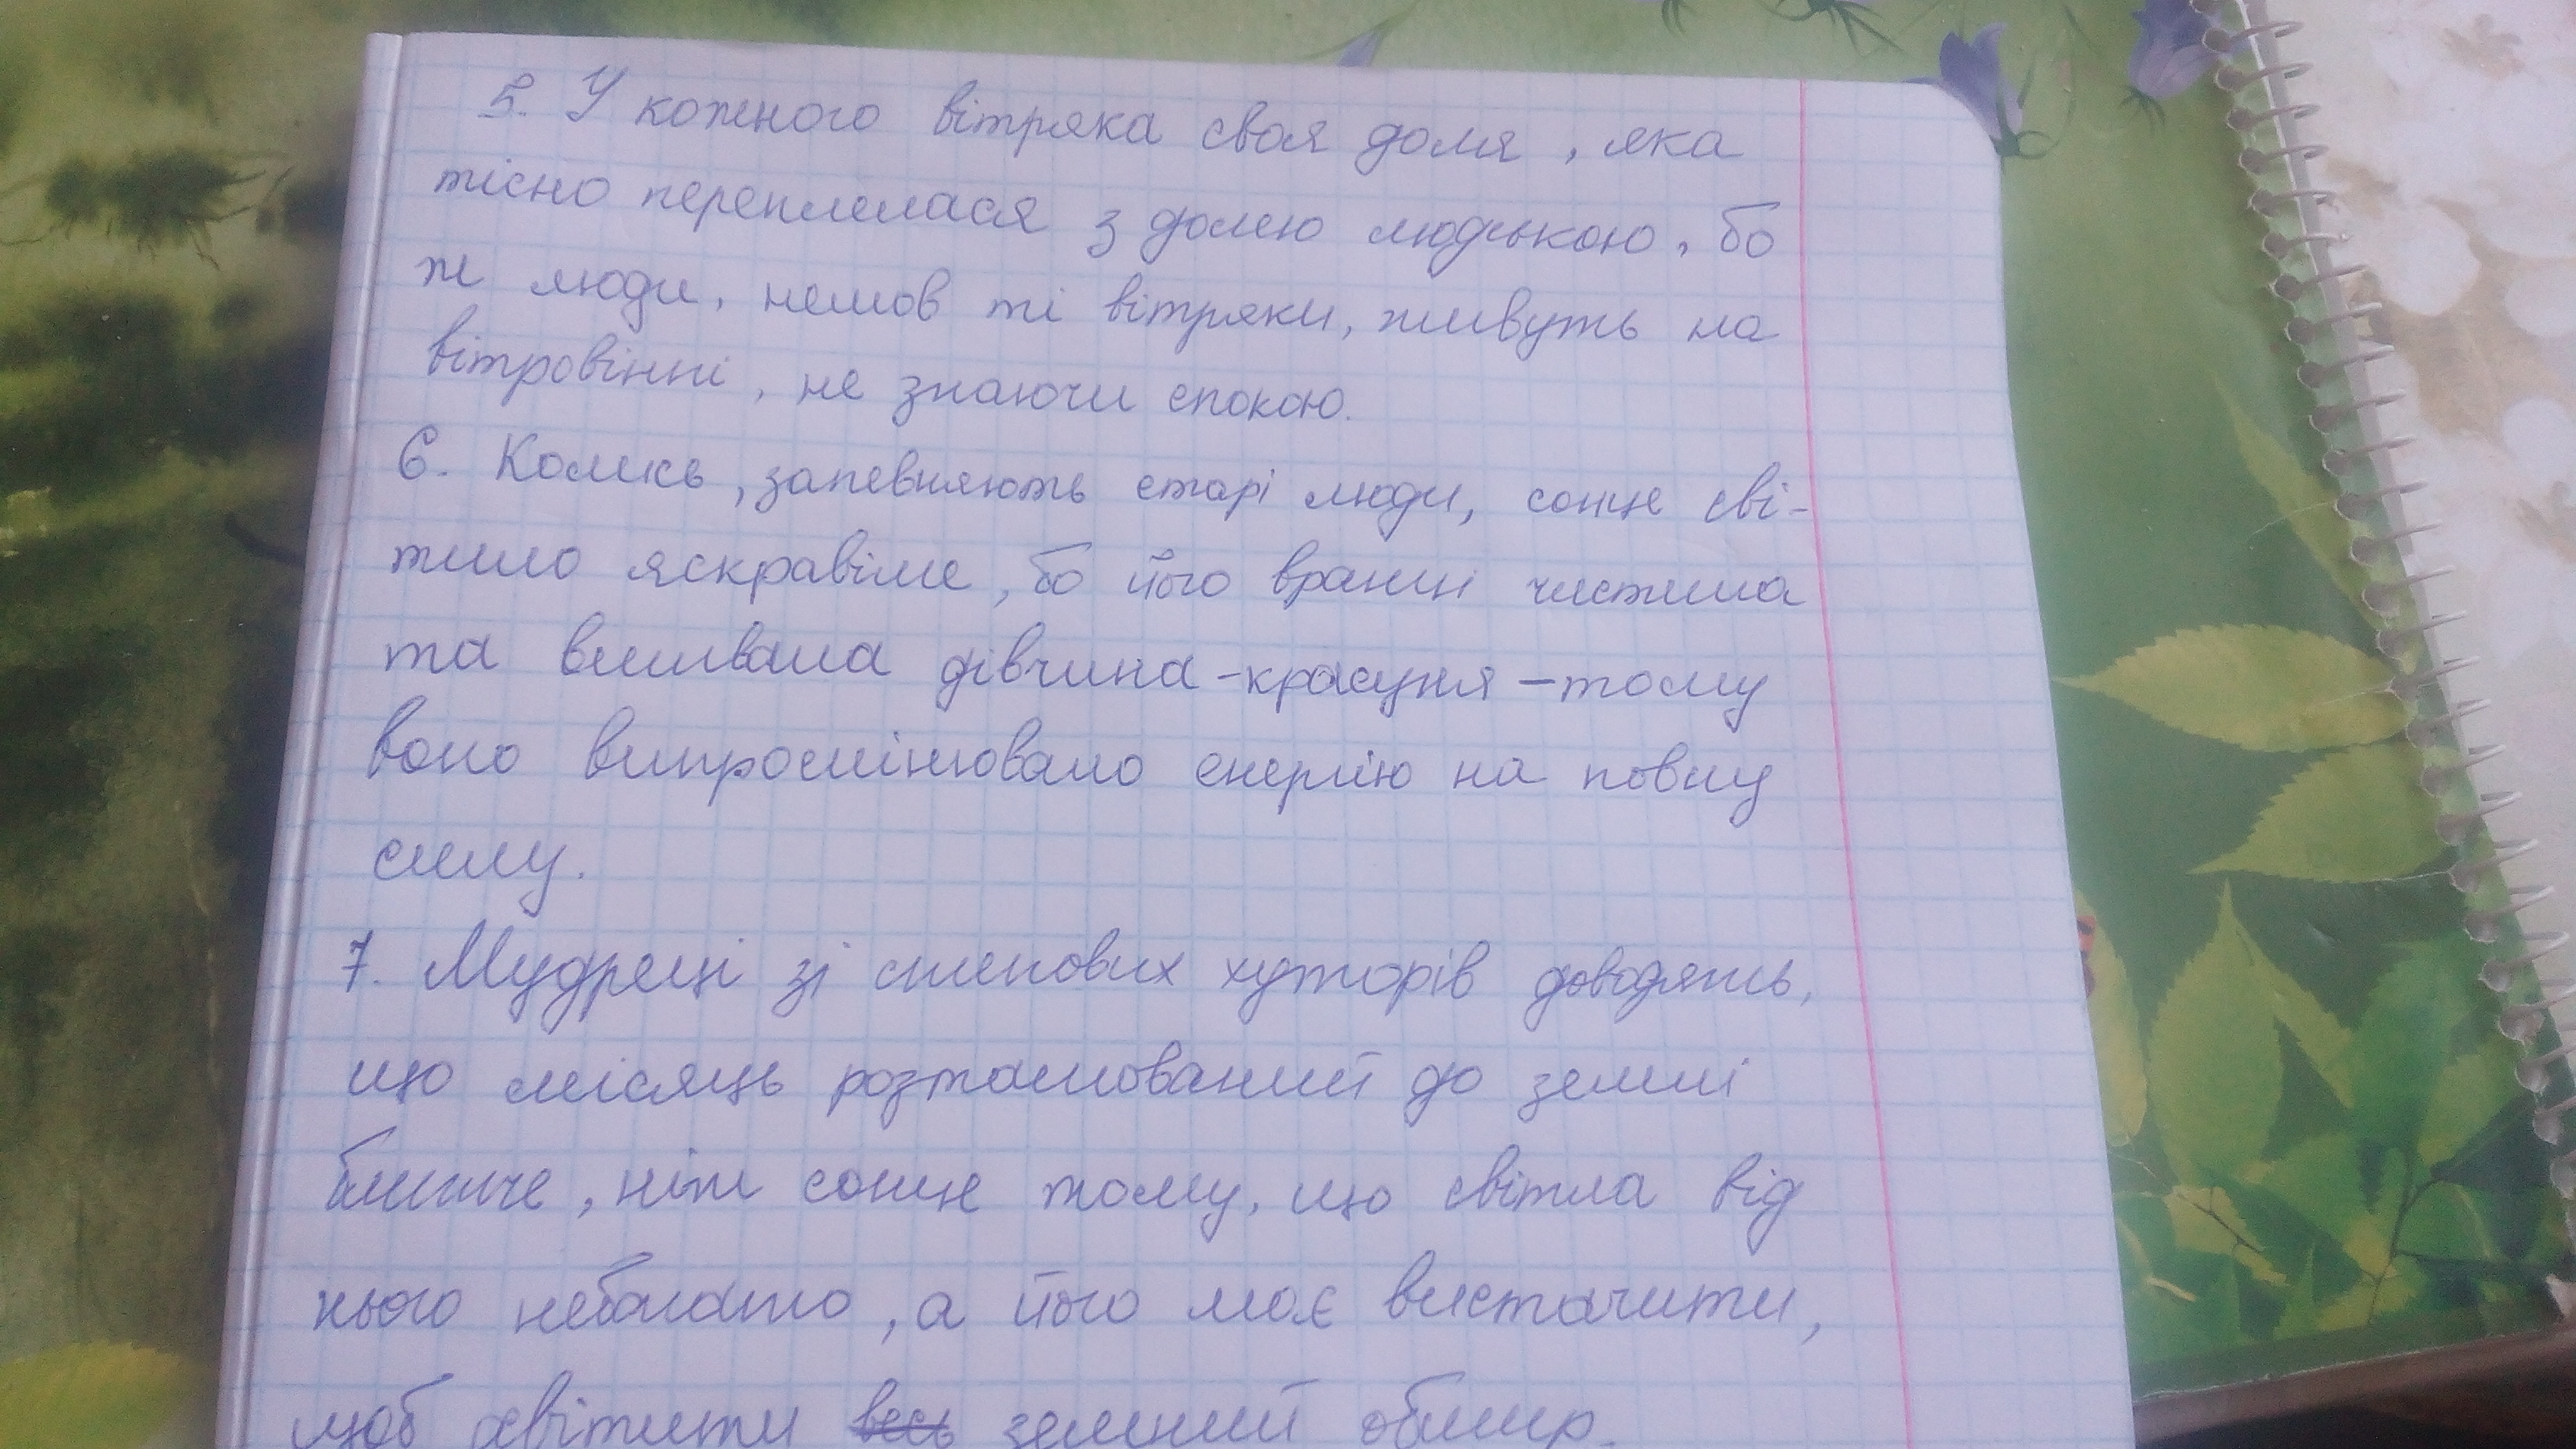 5. У кожного вітряка своя доля, яка
тісно переплелася з долею людською, бо
ж люди, немов ті вітряки, живуть на
вітровінні, не знаючи спокою.
6. Колись, запевняють старі люди, сонце сві-
тило яскравіше, бо його вранці чистила
та вмивала дівчина-красуня - тому
воно випромінювало енергію на повну
силу.
7. Мудреці зі степових хуторів доводять,
що місяць розташований до землі
ближче, ніж сонце тому, що світла від
нього небагато, а його має вистачити,
щоб освітити весь земний обшир.